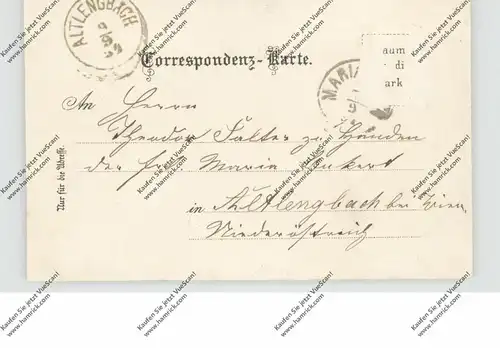 ALTLENGBACH
Correspondenz-Karte.
aum
di
ark
MARIA
An Herrn
Theodor Salter zu Handen
der Frl. Maria
in Altlengbach bei Wien
Niederöstreich
Nur für die Adresse.
Kaufen Sie jetzt VueScan!
www.hamrick.com